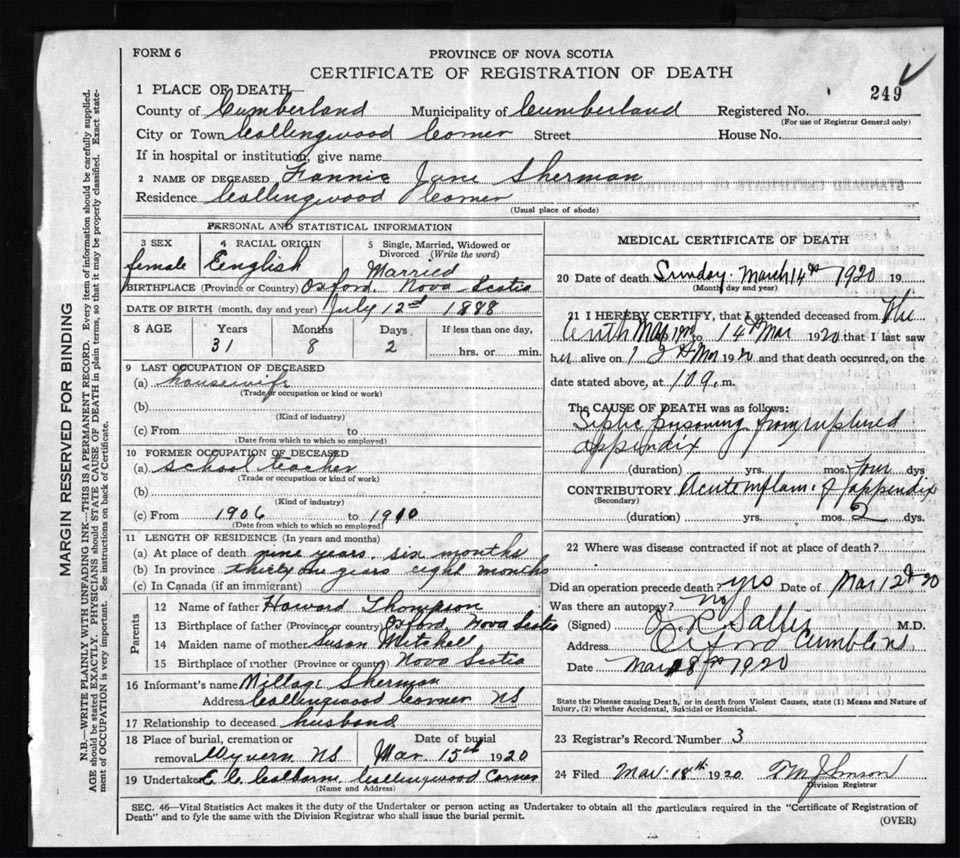 FORM 6
PROVINCE OF NOVA SCOTIA
CERTIFICATE OF REGISTRATION OF DEATH
249
1 PLACE OF DEATH—
County of Cumberland Municipality of Cumberland Registered No.
(For use of Registrar General only)
City or Town Collingwood Corner Street House No.
If in hospital or institution, give name
2 NAME OF DECEASED Fannie Jane Sherman
Residence Collingwood Corner
(Usual place of abode)
PERSONAL AND STATISTICAL INFORMATION
3 SEX 4 RACIAL ORIGIN 5 Single, Married, Widowed or Divorced (Write the word)
female English Married
BIRTHPLACE (Province or Country) Oxford Nova Scotia
DATE OF BIRTH (month, day and year) July 12d 1888
8 AGE Years Months Days If less than one day,
31 8 2 hrs. or min.
9 LAST OCCUPATION OF DECEASED
(a) housewife
(Trade or occupation or kind or work)
(b)
(Kind of industry)
(c) From to
(Date from which to which so employed)
10 FORMER OCCUPATION OF DECEASED
(a) school teacher
(Trade or occupation or kind of work)
(b)
(Kind of industry)
(c) From 1906 to 1910
(Date from which to which so employed)
11 LENGTH OF RESIDENCE (In years and months)
(a) At place of death nine years six months
(b) In province thirty one years eight months
(c) In Canada (if an immigrant)
Parents
12 Name of father Howard Thompson
13 Birthplace of father (Province or country) Oxford Nova Scotia
14 Maiden name of mother Susan Mitchell
15 Birthplace of mother (Province or country) Nova Scotia
16 Informant's name Millage Sherman
Address Collingwood Corner NS
17 Relationship to deceased husband
18 Place of burial, cremation or removal Wyvern NS Date of burial Mar 15th 1920
19 Undertaker E C Colborn Collingwood Corner
(Name and Address)
MEDICAL CERTIFICATE OF DEATH
20 Date of death Sunday March 14th 1920 19
(Month day and year)
21 I HEREBY CERTIFY, that I attended deceased from
14th Mar 1920 that I last saw
her alive on Mar 1920 and that death occurred, on the
date stated above, at m.
The CAUSE OF DEATH was as follows:
Septic Poisoning from ruptured
appendix
(duration) yrs. mos. four dys
CONTRIBUTORY Acute inflam. of appendix
(Secondary)
(duration) yrs. mos. 2 dys.
22 Where was disease contracted if not at place of death?
Did an operation precede death? yes Date of Mar 12th 20
Was there an autopsy? no
(Signed) M.D.
Address Oxford
Date 1920
State the Disease causing Death, or in death from Violent Causes, state (1) Means and Nature of
Injury, (2) whether Accidental, Suicidal or Homicidal.
23 Registrar's Record Number 3
24 Filed Mar. 18th 1920
Division Registrar
SEC. 46—Vital Statistics Act makes it the duty of the Undertaker or person acting as Undertaker to obtain all the particulars required in the "Certificate of Registration of
Death" and to fyle the same with the Division Registrar who shall issue the burial permit.
(OVER)
MARGIN RESERVED FOR BINDING
N.B.—WRITE PLAINLY WITH UNFADING INK—THIS IS A PERMANENT RECORD. Every item of information should be carefully supplied.
AGE should be stated EXACTLY. PHYSICIANS should STATE CAUSE OF DEATH in plain terms, so that it may be properly classified. Exact state-
ment of OCCUPATION is very important. See instructions on back of Certificate.